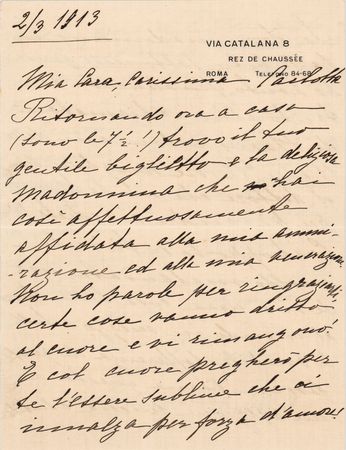 2/3 1913
VIA CATALANA 8
REZ DE CHAUSSÉE
ROMA TELEFONO 84-68
Mia Cara, Carissima Carlotta
Ritornando ora a casa
(sono le 7½!) trovo il tuo
gentile biglietto e la deliziosa
Madonnina che m'hai
così affettuosamente
affidata alla mia ammi-
-razione ed alla mia venerazione.
Non ho parole per ringraziarti
certe cose vanno dritto
al cuore e vi rimangono!
E col cuore pregherò per
te l'essere sublime che ci
innalza per forza d'amore!